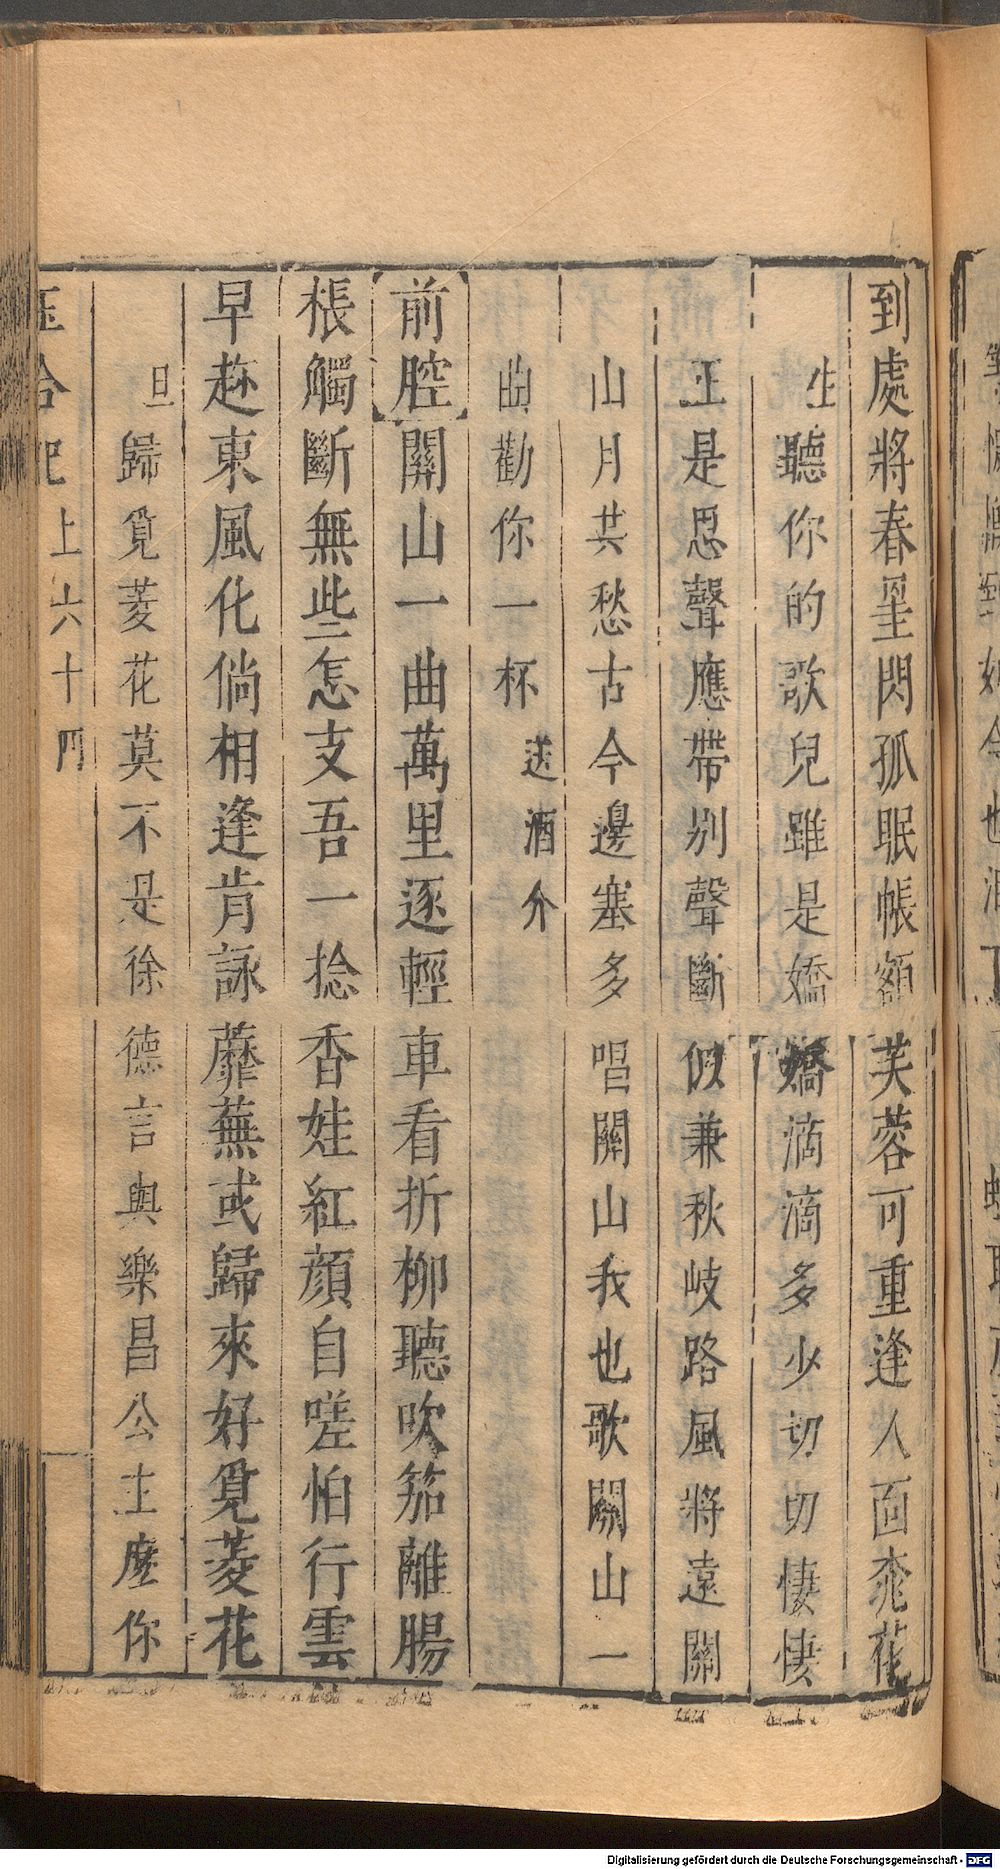 到處將春𨤲閃孤眠帳額芙蓉可重逢人面桃花
生聽你的歌兒雖是嬌嬌滴滴多少切切悽悽
正是思聲應帶別聲斷似兼秋岐路風將遠關
山月共愁古今邊塞多唱關山我也歌關山一
曲勸你一杯送酒介
前腔關山一曲萬里逐輕車看折柳聽吹笳離腸
棖觸斷無些怎支吾一捻香娃紅顔自嗟怕行雲
早趂東風化倘相逢肯詠蘼蕪或歸來好覓菱花
旦歸覓菱花莫不是徐德言與樂昌公主麽你
玉合記上六十四
Digitalisierung gefördert durch die Deutsche Forschungsgemeinschaft - DFG